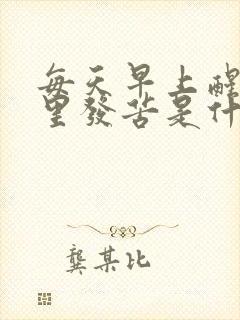 每天早上醒
里發苦是什
龔某比